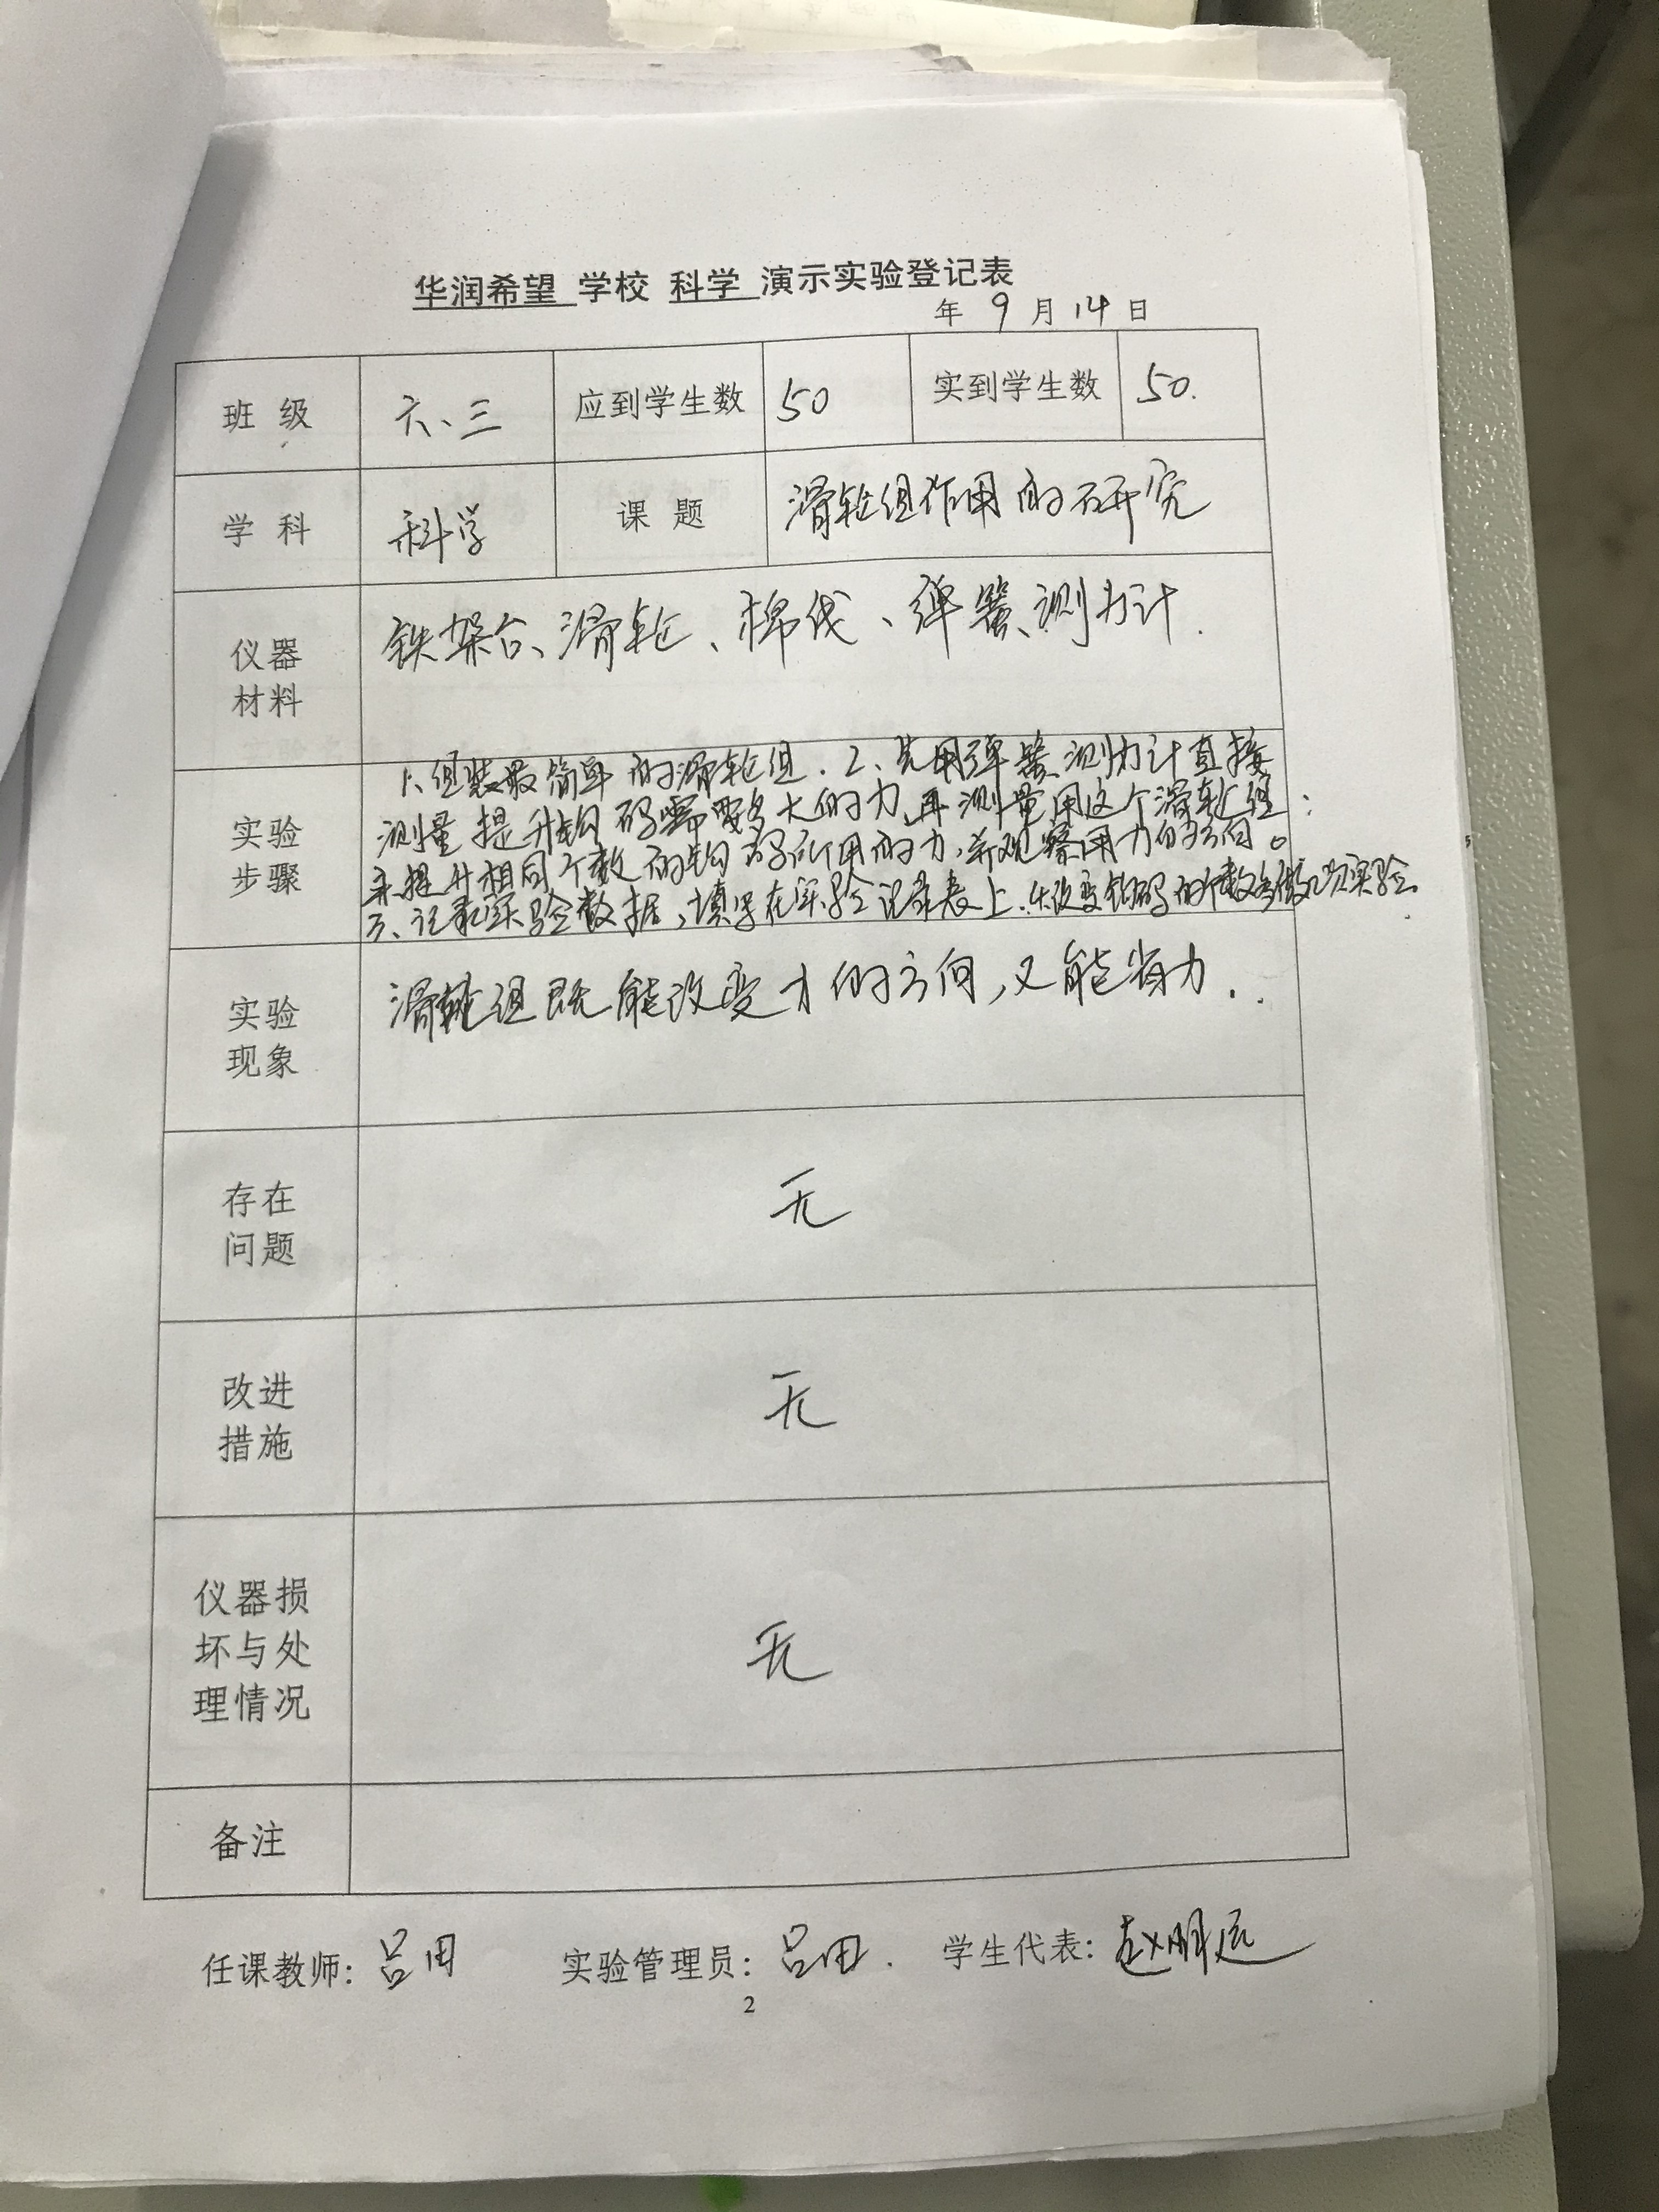 华润希望 学校 科学 演示实验登记表
年 9 月 14 日
班 级 六、三 应到学生数 50 实到学生数 50.
学 科 科学 课 题 滑轮组作用的研究
仪器
材料
铁架台、滑轮、棉线、弹簧测力计.
实验
步骤
1、组装最简单的滑轮组. 2、先用弹簧测力计直接
测量提升钩码需要多大的力,再测量用这个滑轮组
来提升相同个数的钩码所用的力,并观察用力的方向。
3、记录实验数据,填写在实验记录表上. 4、改变钩码的个数多做几次实验.
实验
现象
滑轮组既能改变力的方向,又能省力.
存在
问题
无
改进
措施
无
仪器损
坏与处
理情况
无
备注
任课教师: 吕田 实验管理员: 吕田. 学生代表: 赵明远
2